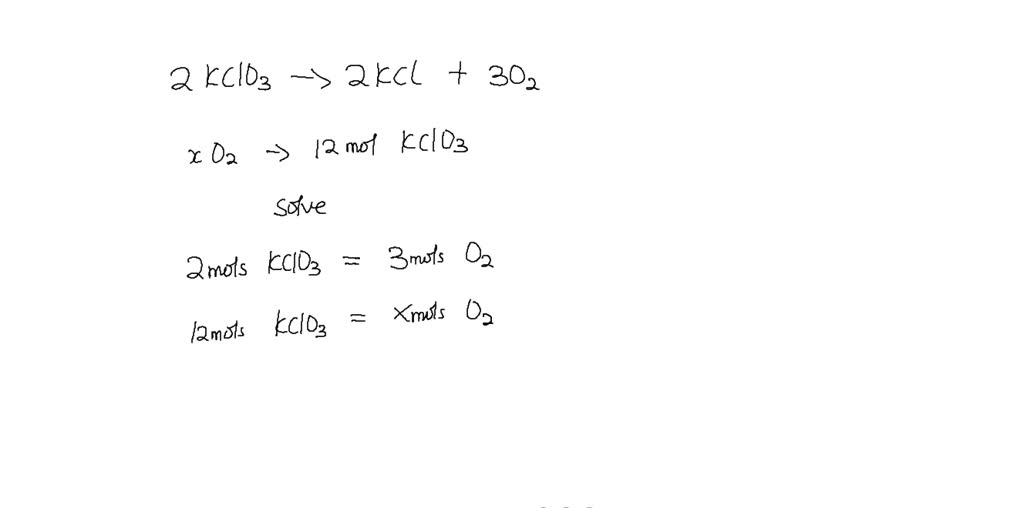 2 KClO3 → 2KCl + 3O2
x O2 → 12 mol KClO3
solve
2mols KClO3 = 3mols O2
12mols KClO3 = xmols O2